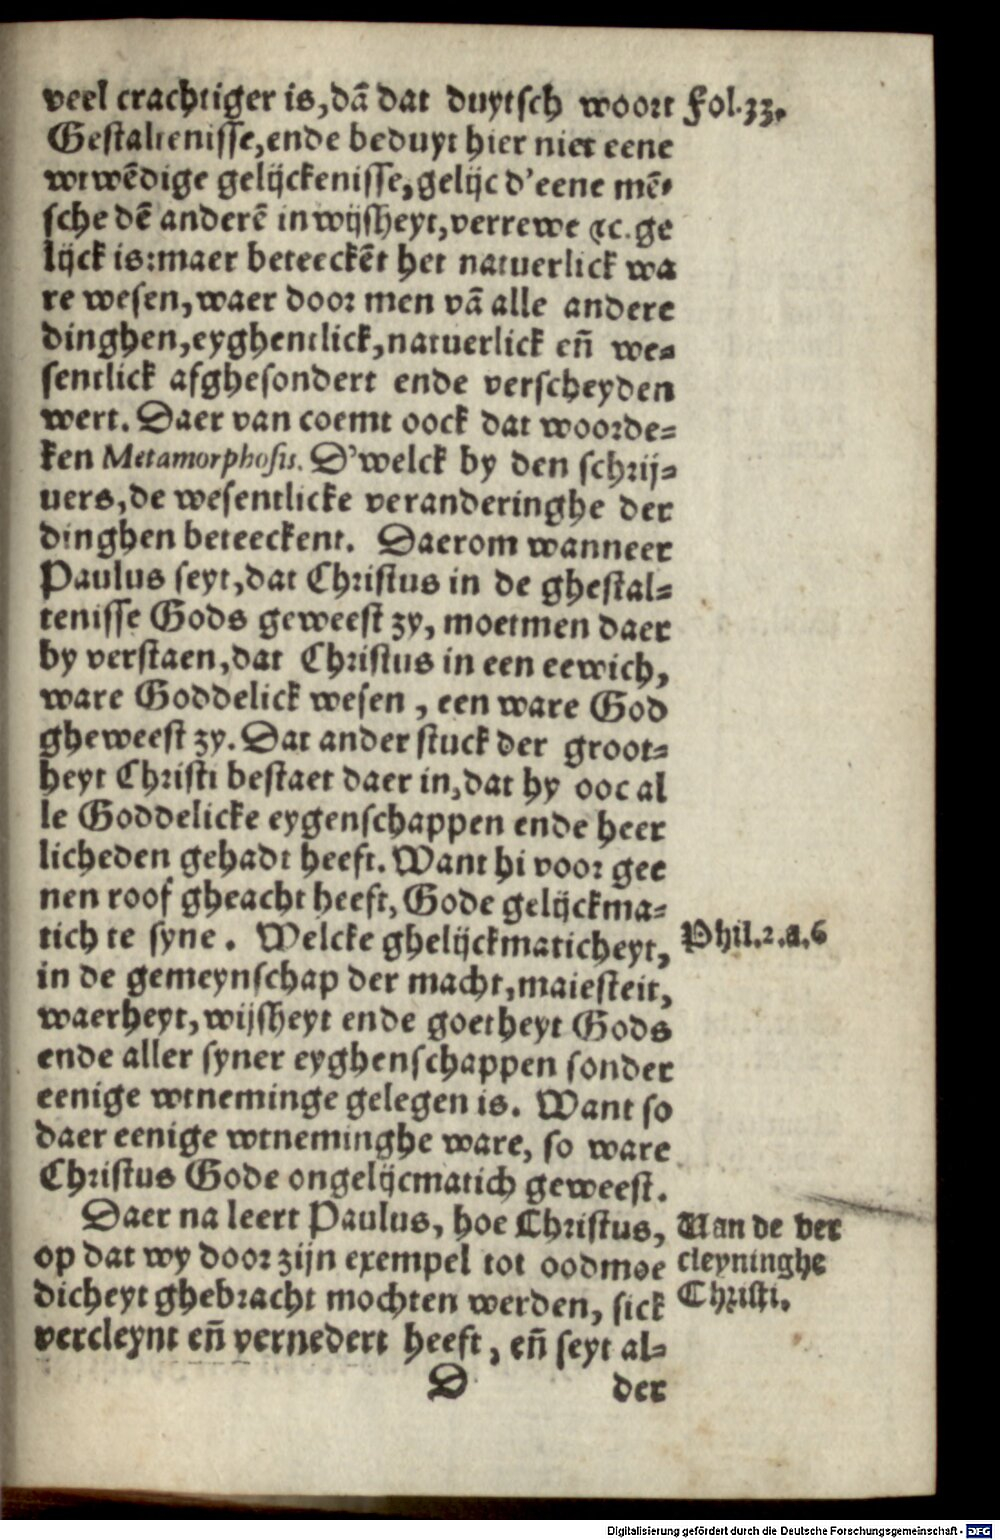 veel crachtiger is, dã dat duytsch woort Fol. 33.
Gestaltenisse, ende beduyt hier niet eene
wtwẽdige gelijckenisse, gelijc d'eene mẽ-
sche dẽ anderẽ in wijsheyt, verrewe ꝛc. ge
lijck is: maer beteeckẽt het natuerlick wa
re wesen, waer door men vã alle andere
dinghen, eyghentlick, natuerlick eñ we-
sentlick afghesondert ende verscheyden
wert. Daer van coemt oock dat woorde-
ken Metamorphosis. D'welck by den schrij-
uers, de wesentlicke veranderinghe der
dinghen beteeckent. Daerom wanneer
Paulus seyt, dat Christus in de ghestal-
tenisse Gods geweest zy, moetmen daer
by verstaen, dat Christus in een eewich,
ware Goddelick wesen, een ware God
gheweest zy. Dat ander stuck der groot-
heyt Christi bestaet daer in, dat hy ooc al
le Goddelicke eygenschappen ende heer
licheden gehadt heeft. Want hi voor gee
nen roof gheacht heeft, Gode gelijckma-
tich te syne. Welcke ghelijckmaticheyt, Phil. 2. a. 6
in de gemeynschap der macht, maiesteit,
waerheyt, wijsheyt ende goetheyt Gods
ende aller syner eyghenschappen sonder
eenige wtneminge gelegen is. Want so
daer eenige wtneminghe ware, so ware
Christus Gode ongelijcmatich geweest.
Daer na leert Paulus, hoe Christus, Van de ver
op dat wy door zijn exempel tot oodmoe cleyninghe
dicheyt ghebracht mochten werden, sick Christi.
vercleynt eñ vernedert heeft, eñ seyt al-
D der
Digitalisierung gefördert durch die Deutsche Forschungsgemeinschaft - DFG